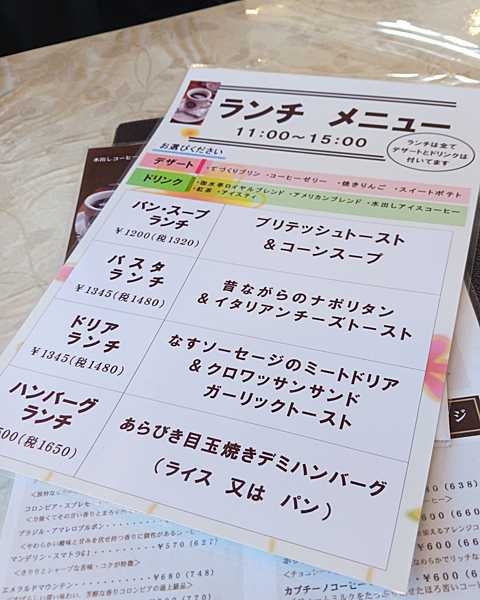 ランチ メニュー
11:00～15:00
ランチは全て
デザートとドリンクは
付いてます
お選びください
デザート ・てづくりプリン ・コーヒーゼリー ・焼きりんご ・スイートポテト
ドリンク ・珈水亭ロイヤルブレンド ・アメリカンブレンド ・水出しアイスコーヒー
・紅茶 ・アイスティ
パン・スープ
ランチ
¥1200(税1320)
ブリテッシュトースト
&コーンスープ
パスタ
ランチ
¥1345(税1480)
昔ながらのナポリタン
&イタリアンチーズトースト
ドリア
ランチ
¥1345(税1480)
なすソーセージのミートドリア
&クロワッサンサンド
ガーリックトースト
ハンバーグ
ランチ
500(税1650)
あらびき目玉焼きデミハンバーグ
(ライス 又は パン)
水出しコーヒー
ジ
コロンビア・スプレモ
ブラジル・アマレロブルボン
マンデリン・スマトラG1 ¥570(627)
<きりりとシャープな苦味・コクが特徴>
エメラルドマウンテン ¥680(748)
(638)
¥600(66
¥600(66
カプチーノコーヒー ¥600